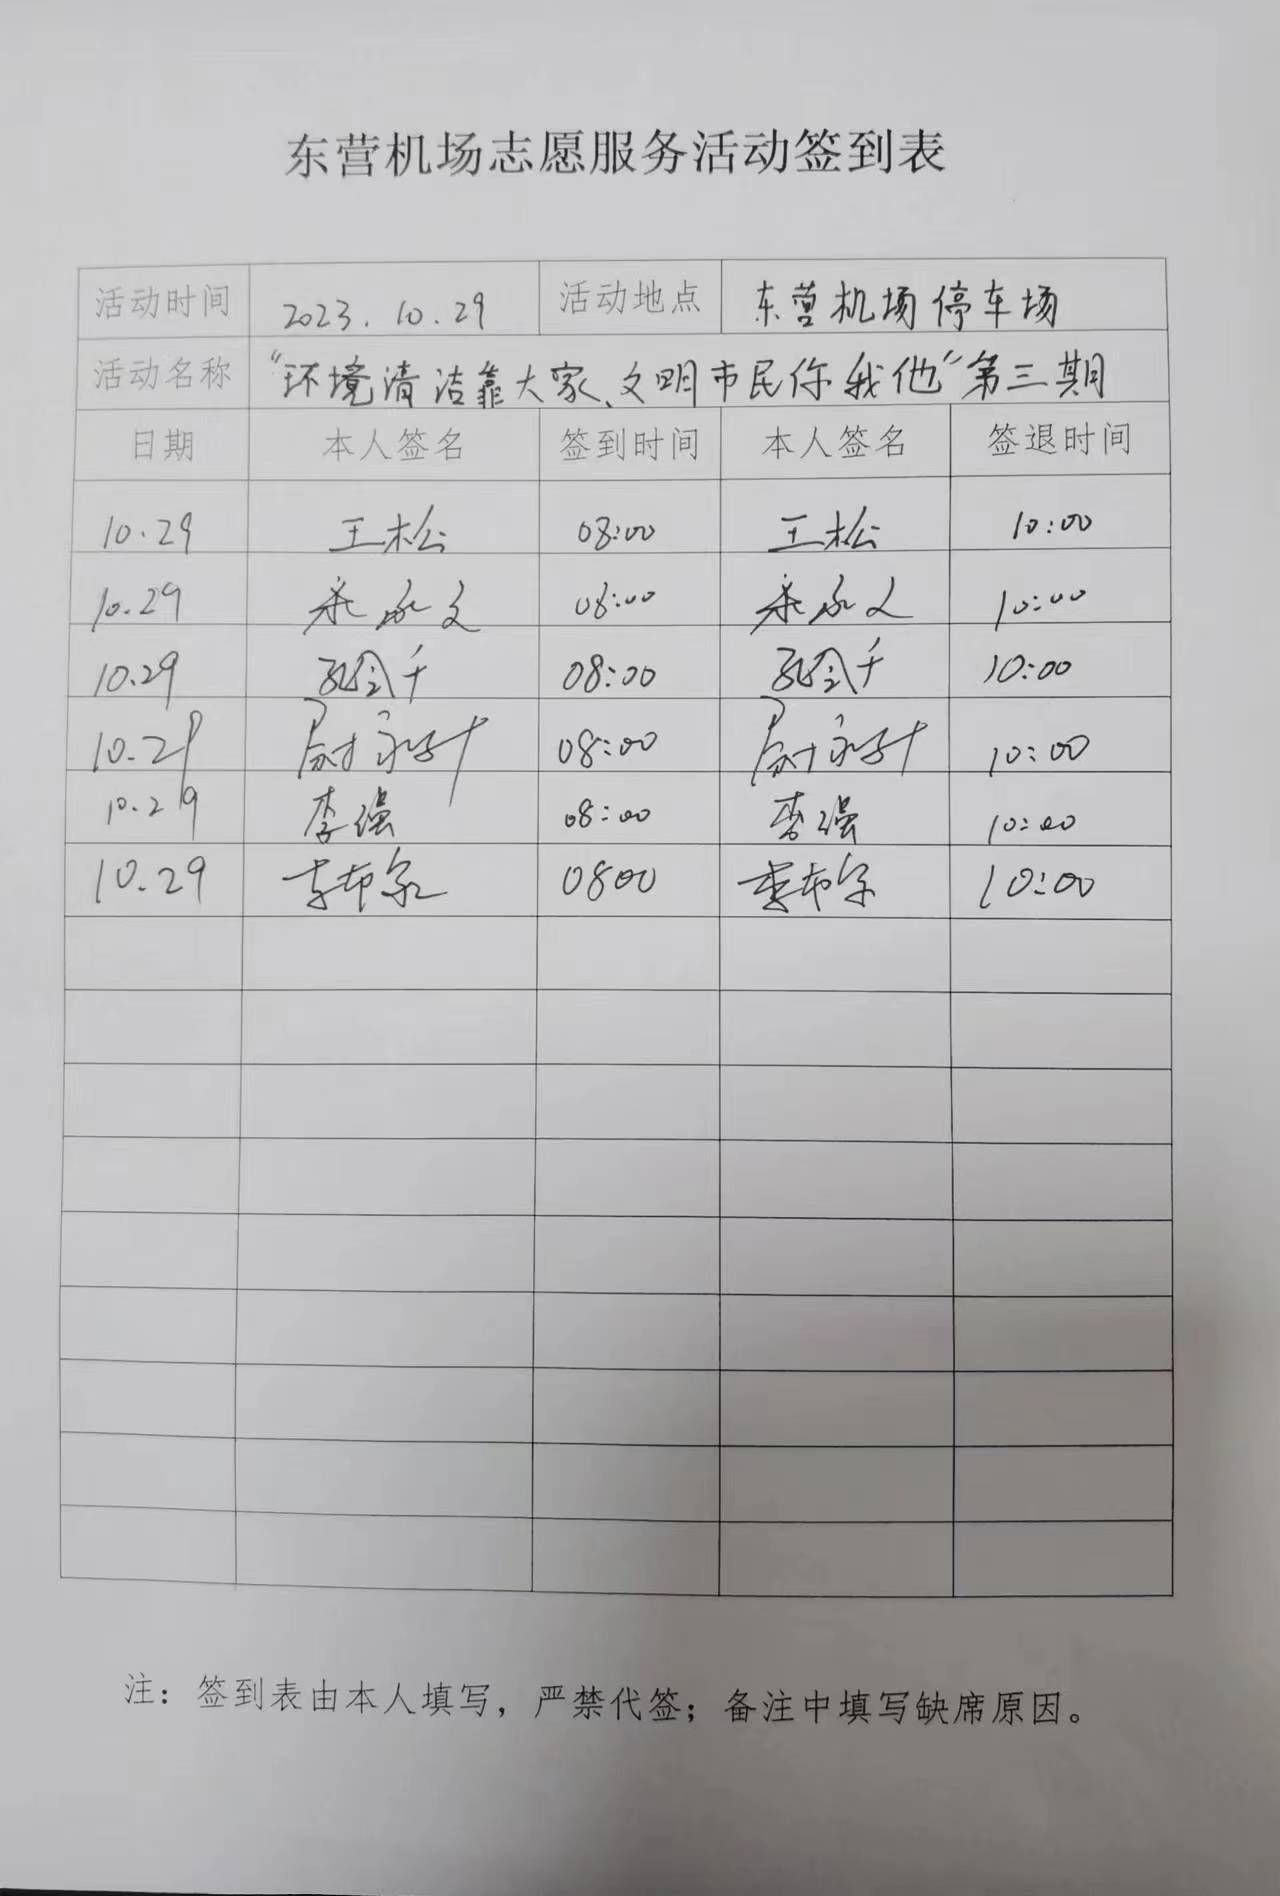 东营机场志愿服务活动签到表
活动时间 2023.10.29 活动地点 东营机场停车场
活动名称 "环境清洁靠大家、文明市民你我他"第三期
日期 本人签名 签到时间 本人签名 签退时间
10.29 王松 08:00 王松 10:00
10.29 08:00 10:00
10.29 孔令千 08:00 孔令千 10:00
10.29 08:00 10:00
10.29 李强 08:00 李强 10:00
10.29 0800 10:00
注：签到表由本人填写，严禁代签；备注中填写缺席原因。